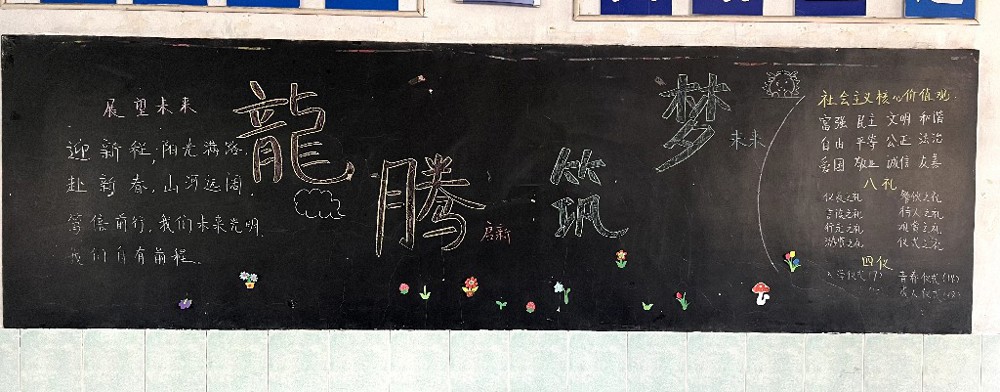 展望未来
迎新征,阳光满路.
赴新春,山河远阔.
笃信前行,我们未来光明.
我们自有前程.
龍腾筑梦
启新
未来
社会主义核心价值观.
富强 民主 文明 和谐
自由 平等 公正 法治
爱国 敬业 诚信 友善
八礼
仪表之礼 餐饮之礼
言谈之礼 待人之礼
行走之礼 观赏之礼
游览之礼 仪式之礼
四仪
入学仪式(7) 青春仪式(14)
成人仪式(18)